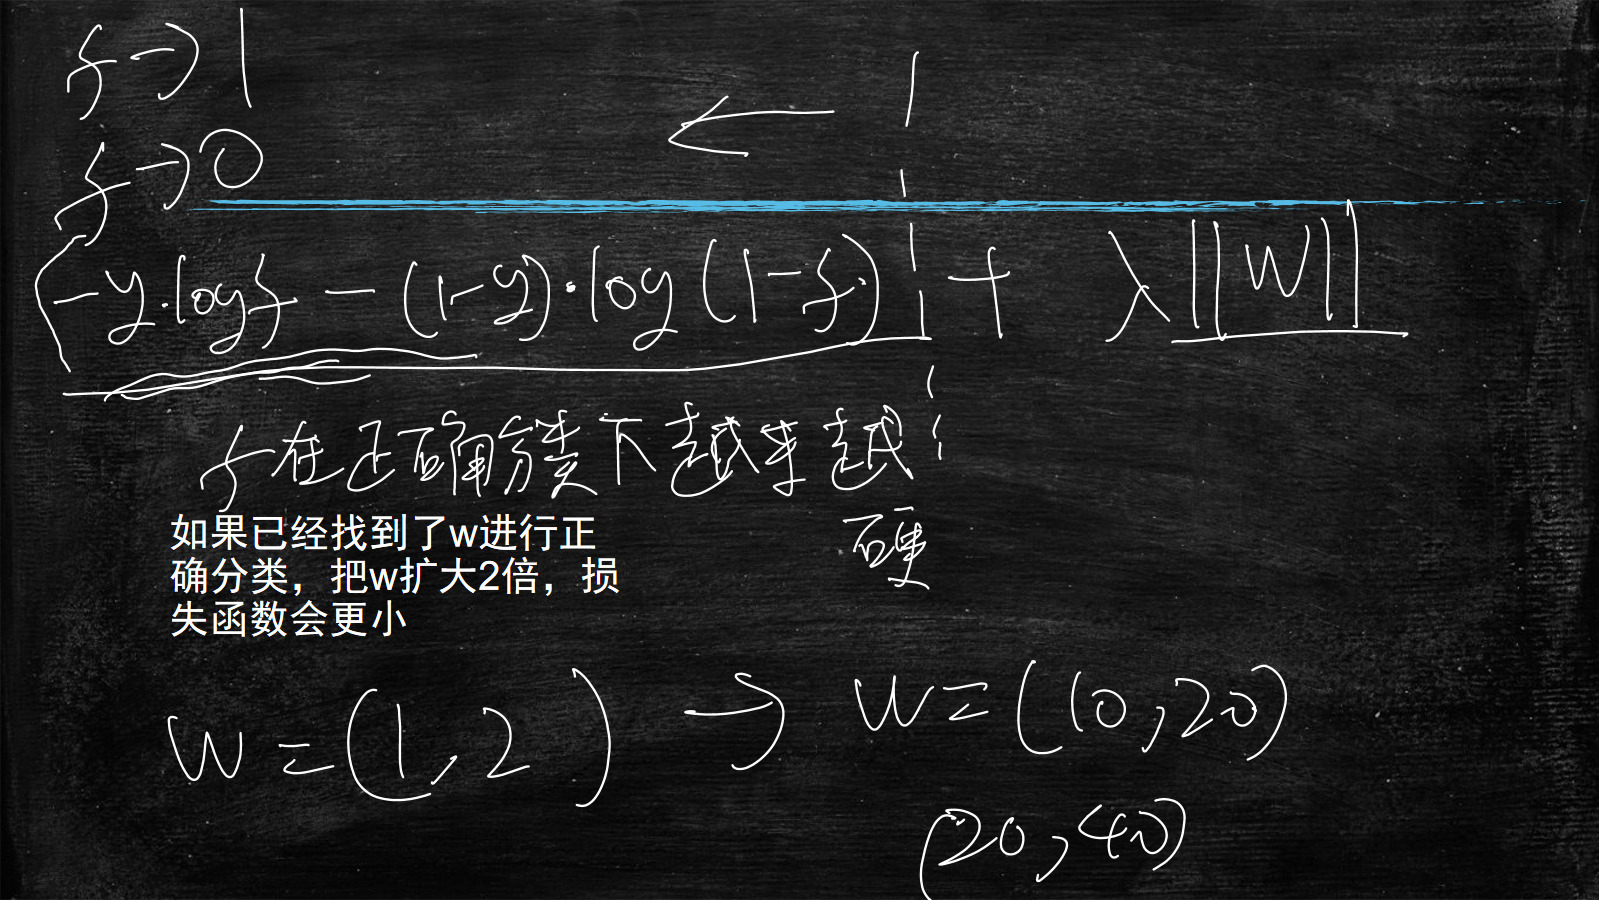 f→1
f→0
(-y·logf-(1-y)·log(1-f))+λ||w||
f在正确分类下越来越
硬
如果已经找到了w进行正
确分类，把w扩大2倍，损
失函数会更小
w=(1,2)→w=(10,20)
(20,40)